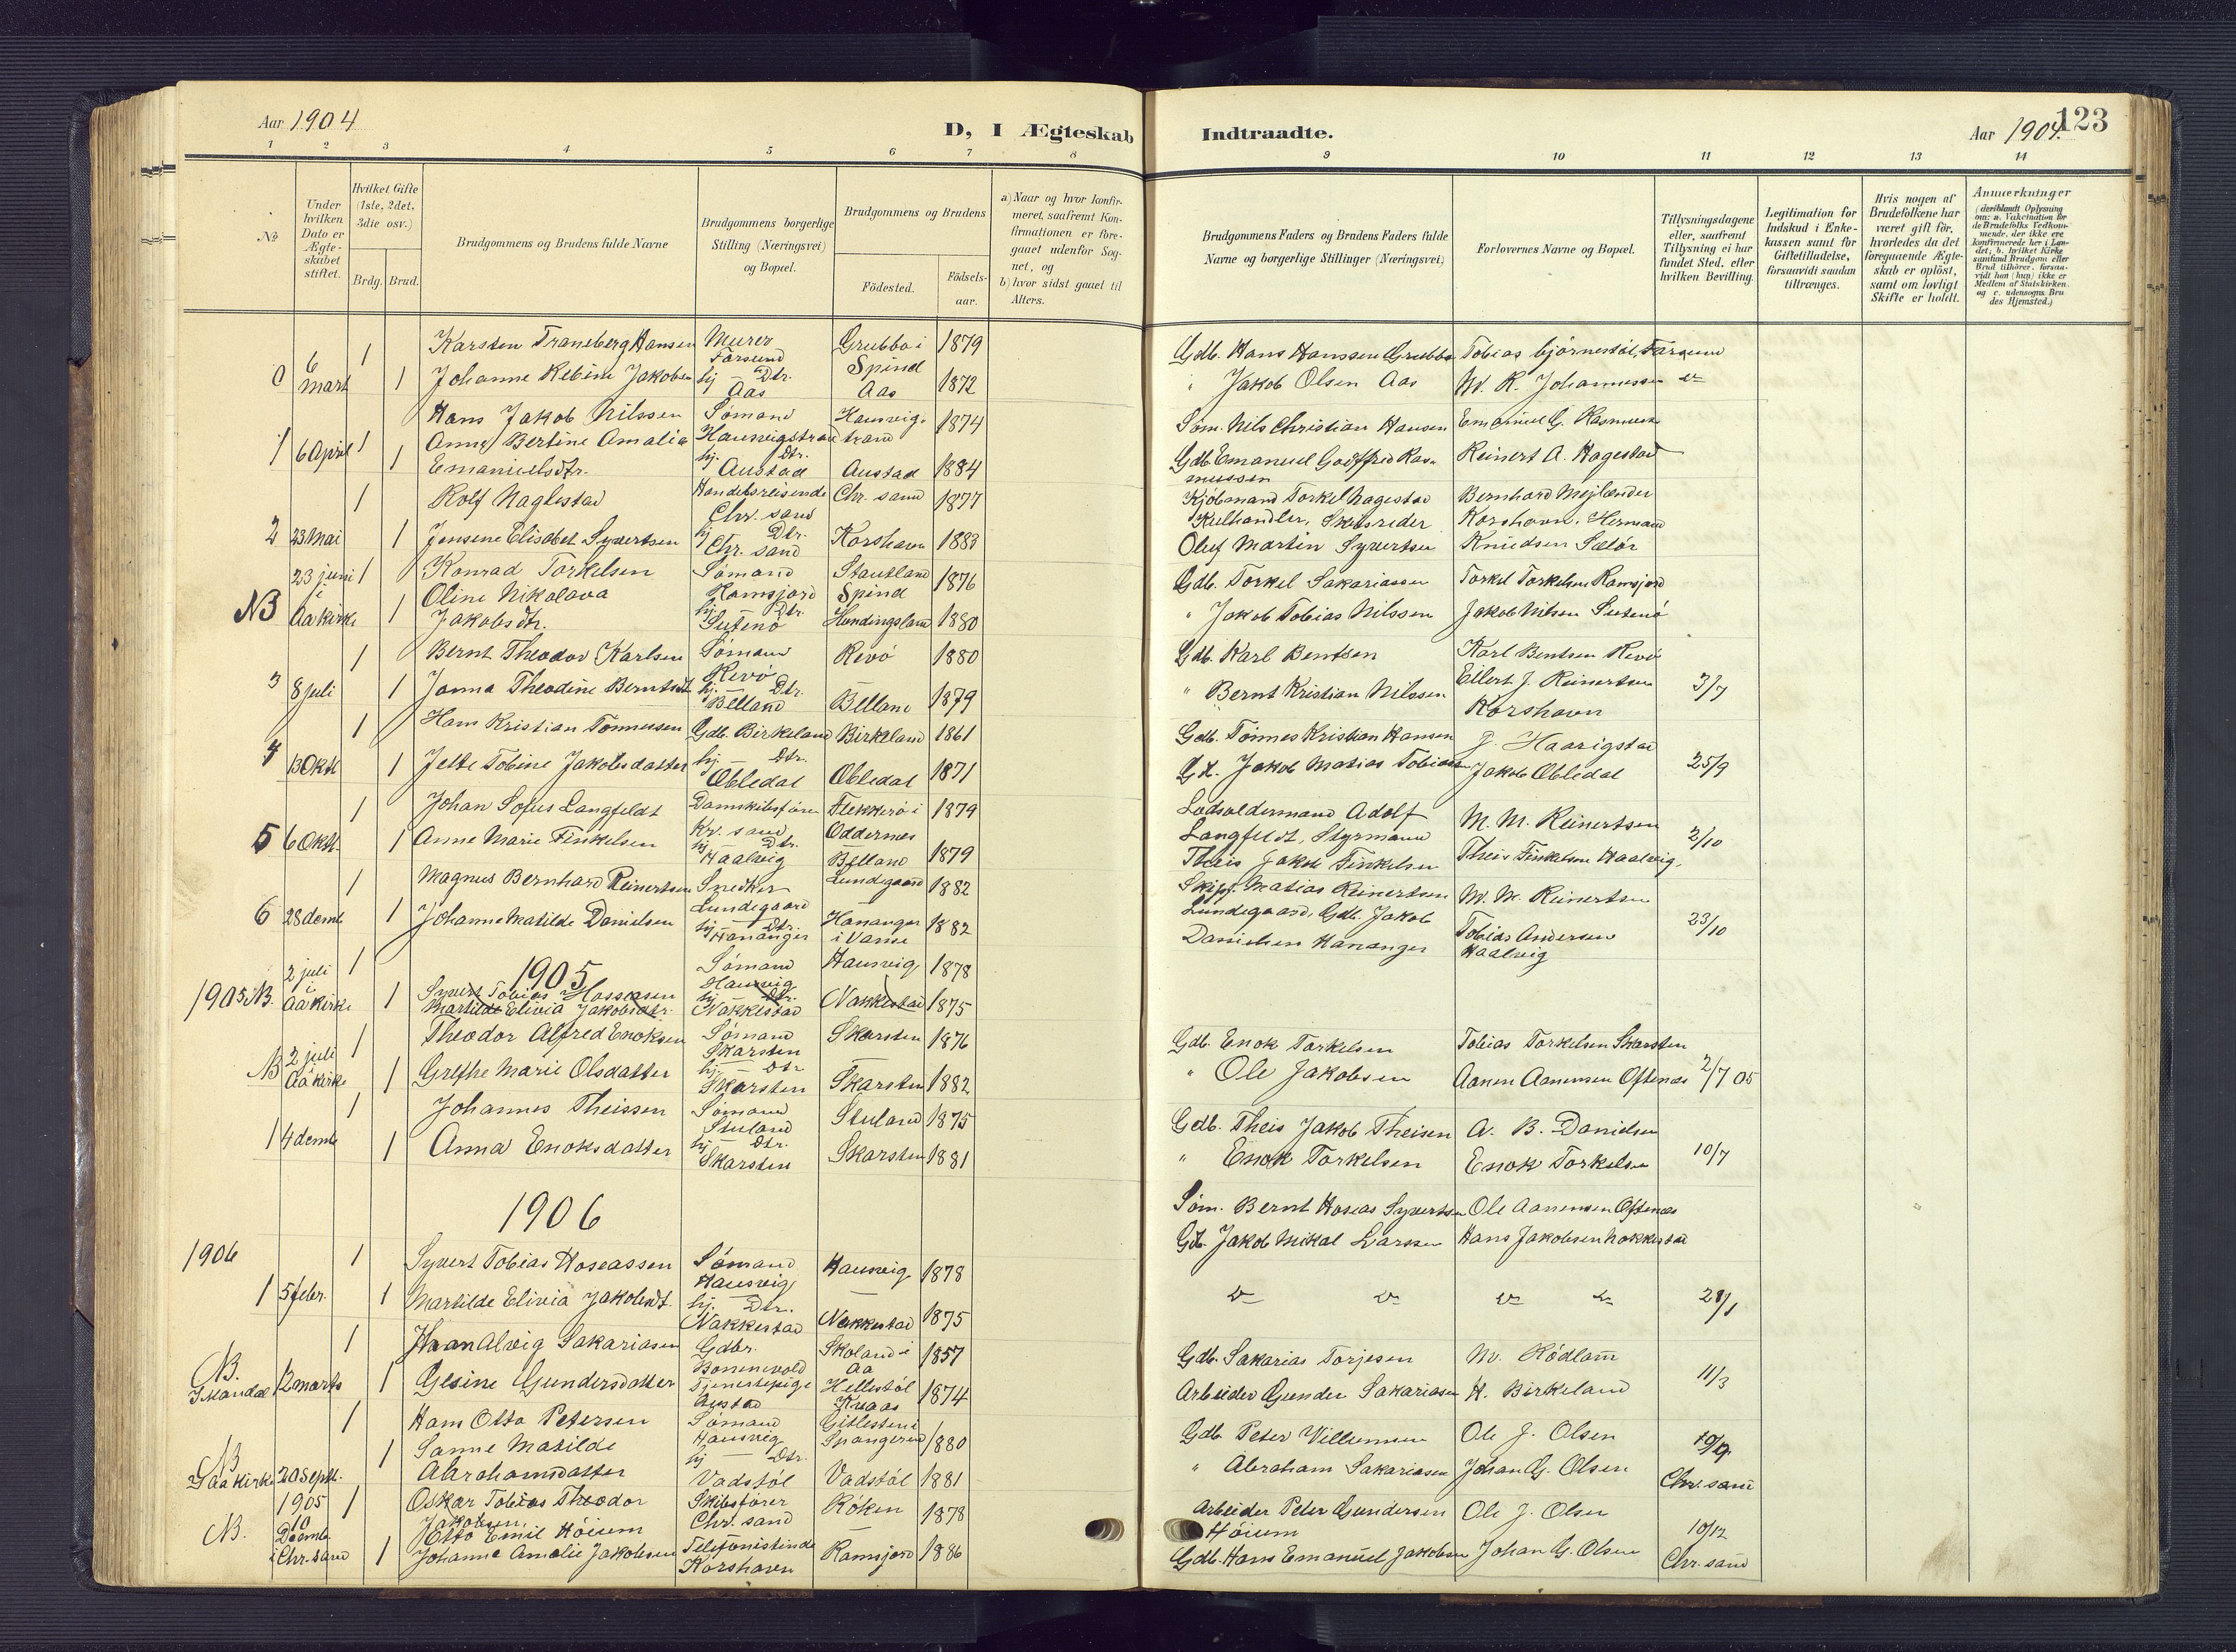 Aar 1904
D, I Ægteskab
Indtraadte.
Aar 1904.
123
1 2 3 4 5 6 7 8 9 10 11 12 13 14
No
Under hvilken Dato er Ægte-skabet stiftet.
Hvilket Gifte (1ste, 2det, 3die osv.)
Brdg. Brud.
Brudgommens og Brudens fulde Navne
Brudgommens borgerlige Stilling (Næringsvei) og Bopæl.
Brudgommens og Brudens
Födested.
Födsels-aar.
a) Naar og hvor konfir-meret, saafremt Kon-firmationen er fore-gaaet udenfor Sog-net, og
b) hvor sidst gaaet til Alters.
Brudgommens Faders og Brudens Faders fulde Navne og borgerlige Stillinger (Næringsvei)
Forlovernes Navne og Bopæl.
Tillysningsdagene eller, saafremt Tillysning ei har fundet Sted, efter hvilken Bevilling.
Legitimation for Indskud i Enke-kassen samt for Giftetilladelse, forsaavidt saadan tiltrænges.
Hvis nogen af Brudefolkene har været gift för, hvorledes da det foregaaende Ægte-skab er oplöst, samt om lovligt Skifte er holdt.
Anmærkninger
(deriblandt Oplysning om: a. Vakcination for de Brudefolks Vedkom-mende, der ikke ere konfirmerede her i Lan-det; b. hvilket Kirke-samfund Brudgom eller Brud tilhörer, forsaa-vidt han (hun) ikke er Medlem af Statskirken. og c. udensogns Bru-des Hjemsted.)
0 6 Mart 1 Karsten Traneberg Hansen Murer Farsund Grubba i Spind 1879 Gdb. Hans Hanssen Grubba Tobias bjørnestøl, Farsund
1 Johanne Rebine Jakobsen hj Dtr. Aas Aas 1872 " Jakob Olsen Aas M. R. Johannessen
1 6 April 1 Hans Jakob Nilssen Sømand Hausvigstrand Hausvigstrand 1874 Søm. Nils Christian Hansen Emanuel G. Rasmussen
1 Anny Bertine Amalia Emanuelsdtr. hj. Dtr. Austad Austad 1884 Gdb. Emanuel Godffred Rasmussen Reinert A. Hagestad
2 23 Mai 1 Rolf Naglestad Handelsreisende Chr. sand Chr. sand 1877 Kjøbmand Torkel Nagestad Bernhard Mejlænder
1 Jensene Elisabet Syvertsen hj Dtr. Chr. sand Korshavn 1883 Kulhandler, Skibsreder Oluf Martin Syvertsen Korshavn. Herman Knudsen Sælør
NB 23 juni i Aa kirke 1 Konrad Torkelsen Sømand Ramsjord Stautland Spind 1876 Gdb. Torkel Sakariassen Torkel Torkelsen Ramsjord
1 Oline Nikolava Jakobsdtr. hj. Dtr. Sutenø Hundingsland 1880 " Jakob Tobias Nilssen Jakob Nilsen Sutenø
3 8 juli 1 Bernt Theodor Karlsen Sømand Revø Revø 1880 Gdb. Karl Bentsen Karl Bentsen Revø
1 Janna Theodine Berntsdt hj. Dtr. Belland Belland 1879 " Bernt Kristian Nilssen Eilert J. Reinertsen Korshavn 3/7
4 13 Okt 1 Hans Kristian Tønnessen Gdb. Birkeland Birkeland 1861 Gdb. Tønnes Kristian Hansen J. Haarigstad
1 Jette Tobine Jakobsdatter hj. Dtr. Obledal Obledal 1871 Gd. Jakob Matias Tobiassen Jakob Obledal 25/9
5 6 Okt. 1 Johan Sofus Langfeldt Damskibsfører Kr. sand Flekkerø i Oddernes 1879 Lodsoldermand Adolf Langfeldt, Styrmand M. M. Reinertsen
1 Anne Marie Finkelsen hj Dtr. Haalvig Belland 1879 Theis Jakob Finkelsen Theis Finkelsen Haalvig, 2/10
6 28 demb 1 Magnus Bernhard Reinertsen Snedker Lundegaard Lundegaard 1882 Skipp. Matias Reinertsen M. M. Reinertsen
1 Johanne Matilde Danielsen hj. Dtr. Hananger Hananger i Vanse 1882 Lundegaard, Gdb. Jakob Danielsen Hananger Tobias Andersen Haalvig 23/10
1905
1905 NB. 2 juli i Aa Kirke 1 Syvert Tobias Hosseasen Sømand Hausvig Hausvig 1878
1 Martilde Elivia Jakobsdtr. hj. Dtr. Nakkestad Nakkestad 1875
NB 2 juli Aa kirke 1 Theodor Alfred Enoksen Sømand Skarsten Skarsten 1876 Gdb. Enok Torkelsen Tobias Torkelsen Skarsten
1 Grethe Marie Olsdatter hj. Dtr Skarsten Skarsten 1882 " Ole Jakobsen Aanen Aanensen Oftenæs 2/7 05
1 4 demb 1 Johannes Theissen Sømand Stuland Stuland 1875 Gdb. Theis Jakob Theisen A. B. Danielsen
1 Anna Enoksdatter hj. Dtr. Skarsten Skarsten 1881 " Enok Torkelsen Enok Torkelsen 10/7
1906
Søm. Bernt Hoseas Syvertsen Ole Aanensen Oftenæs
Gdb. Jakob Mikal Larssen Hans Jakobsen Nakkestad
1906
1 5 febr. 1 Syvert Tobias Hoseassen Sømand Hausvig Hausvig 1878
1 Martilde Elivia Jakobsdt. hj. Dtr. Nakkestad Nakkestad 1875 28/1
NB. I Kandal 12 marts 1 Haanalvig Sakariasen Gdbr. Bonnevold Skoland i Aa 1857 Gdb. Sakarias Torjesen M. Rödland
1 Gesine Gundersdatter Tjenestepige Austad Hellestøl Kvaas 1874 Arbeider Gunder Sakariasen H. Birkeland 11/3
NB I Aa kirke 20 Sept. 1 Hans Otto Petersen Sømand Hausvig Gitlesten i Spangereid 1880 Gdb. Peter Villumsen Ole J. Olsen
1 Sanne Matilde Abrahamsdatter hj Dtr. Vadstøl Vadstøl 1881 " Abraham Sakariasen Johan G. Olsen Chr. sand
NB. 1905 10 Decemb i Chr. sand 1 Oskar Tobias Theodor Jakobsen, Otto Emil Höium Skibsfører Chr. sand Røken 1878 Arbeider Peter Gundersen Höium Ole J. Olsen
1 Johanne Amalie Jakobsen Telefonistinde Korshavn Ramsjord 1886 Gdb. Hans Emanuel Jakobsen Johan G. Olsen 10/12 Chr. sand